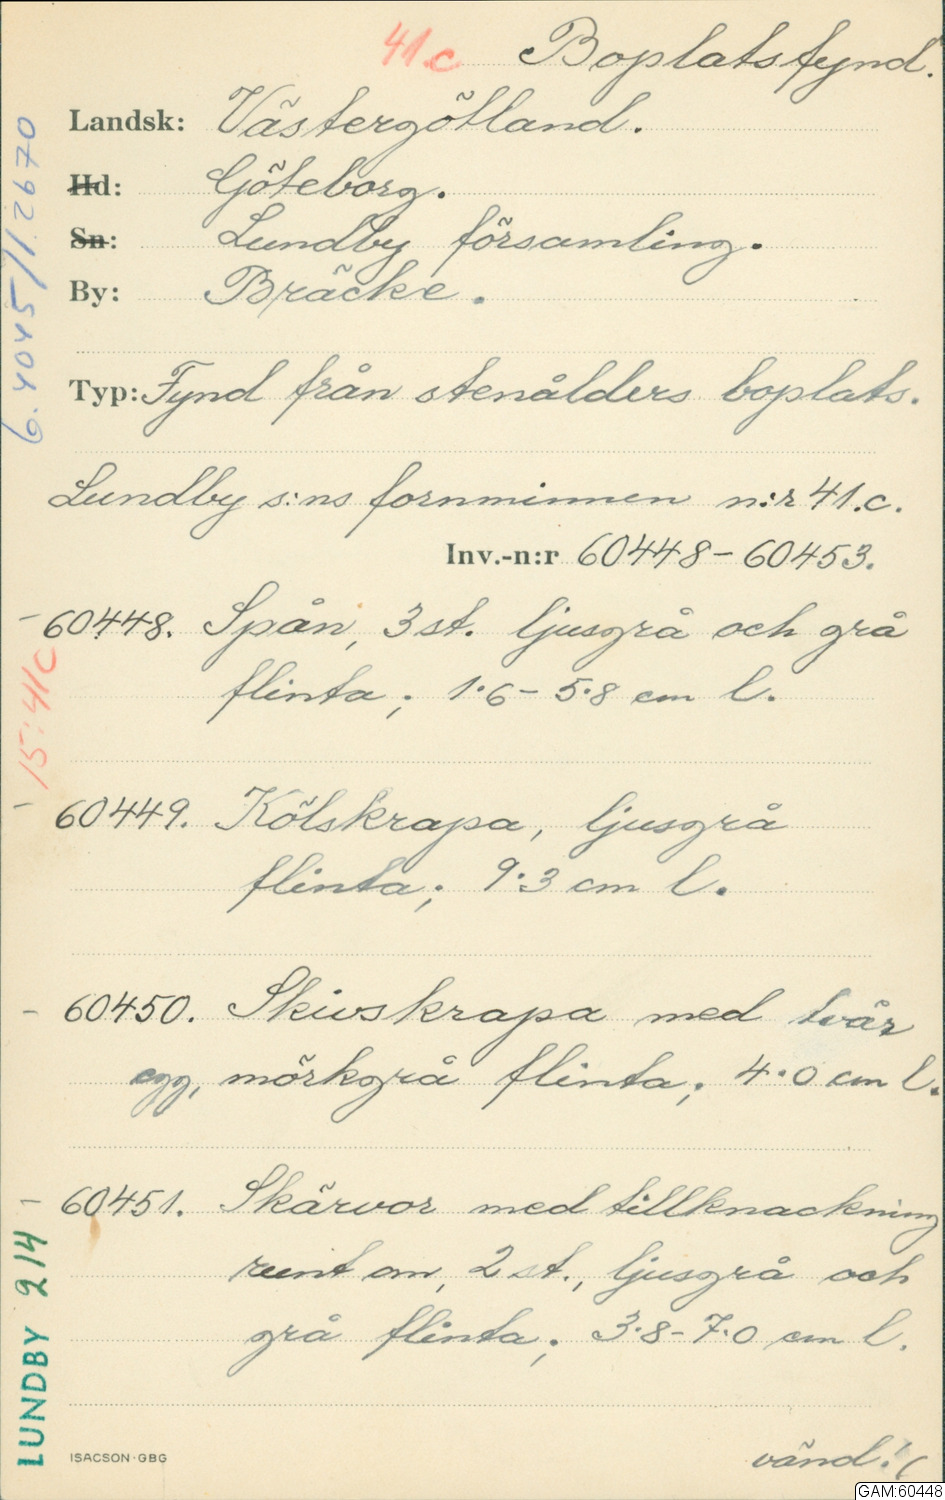 41.c Boplatsfynd.
Landsk: Västergötland.
Hd: Göteborg.
Sn: Lundby församling.
By: Bräcke.
Typ: Fynd från stenålders boplats.
Lundby s:ns fornminnen n:r 41.c.
Inv.-n:r 60448-60453.
- 60448. Spån, 3 st. ljusgrå och grå
flinta; 1·6-5·8 cm l.
- 60449. Kölskrapa, ljusgrå
flinta; 9·3 cm l.
- 60450. Skivskrapa med tvär
egg, mörkgrå flinta; 4·0 cm l.
- 60451. Skärvor med tillknackning
runt om, 2 st., ljusgrå och
grå flinta; 3·8-7·0 cm l.
ISACSON·GBG
vänd!
GAM:60448
15:41c
LUNDBY 214